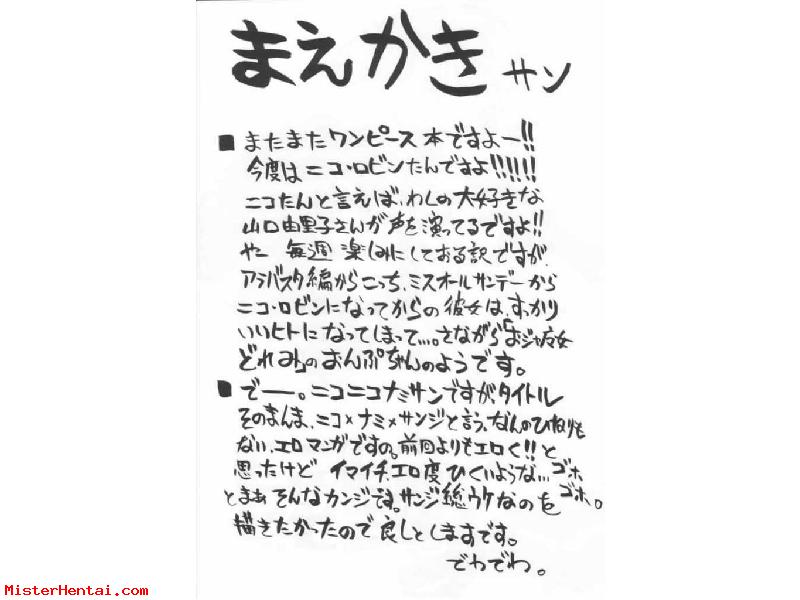 まえがき サン
■ またまたワンピース本ですよー!!
今度はニコ・ロビンたんですよ!!!!!
ニコたんと言えば、わしの大好きな
山口由里子さんが声を演ってるですよ!!
やー 毎週楽しみにしておる訳ですが、
アラバスタ編からこっち、ミスオールサンデーから
ニコ・ロビンになってからの彼女は、すっかり
いいヒトになってしまって…。さながら「おジャ魔女
どれみ」のおんぷちゃんのようです。
■ でー。ニコニコナミサンですが、タイトル
そのまんま、ニコ×ナミ×サンジと言う、なんのひねりも
ない、エロマンガですの。前回よりもエロく!!と
思ったけど イマイチ、エロ度ひくいような… ゴホ
ゴホ。
とまぁ そんなカンジです。サンジ総ウケなのを
描きたかったので良しとしますです。
でわでわ。
MisterHentai.com